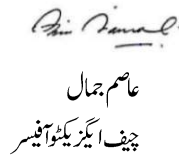 عاصم جمال
چیف ایگزیکٹو آفیسر